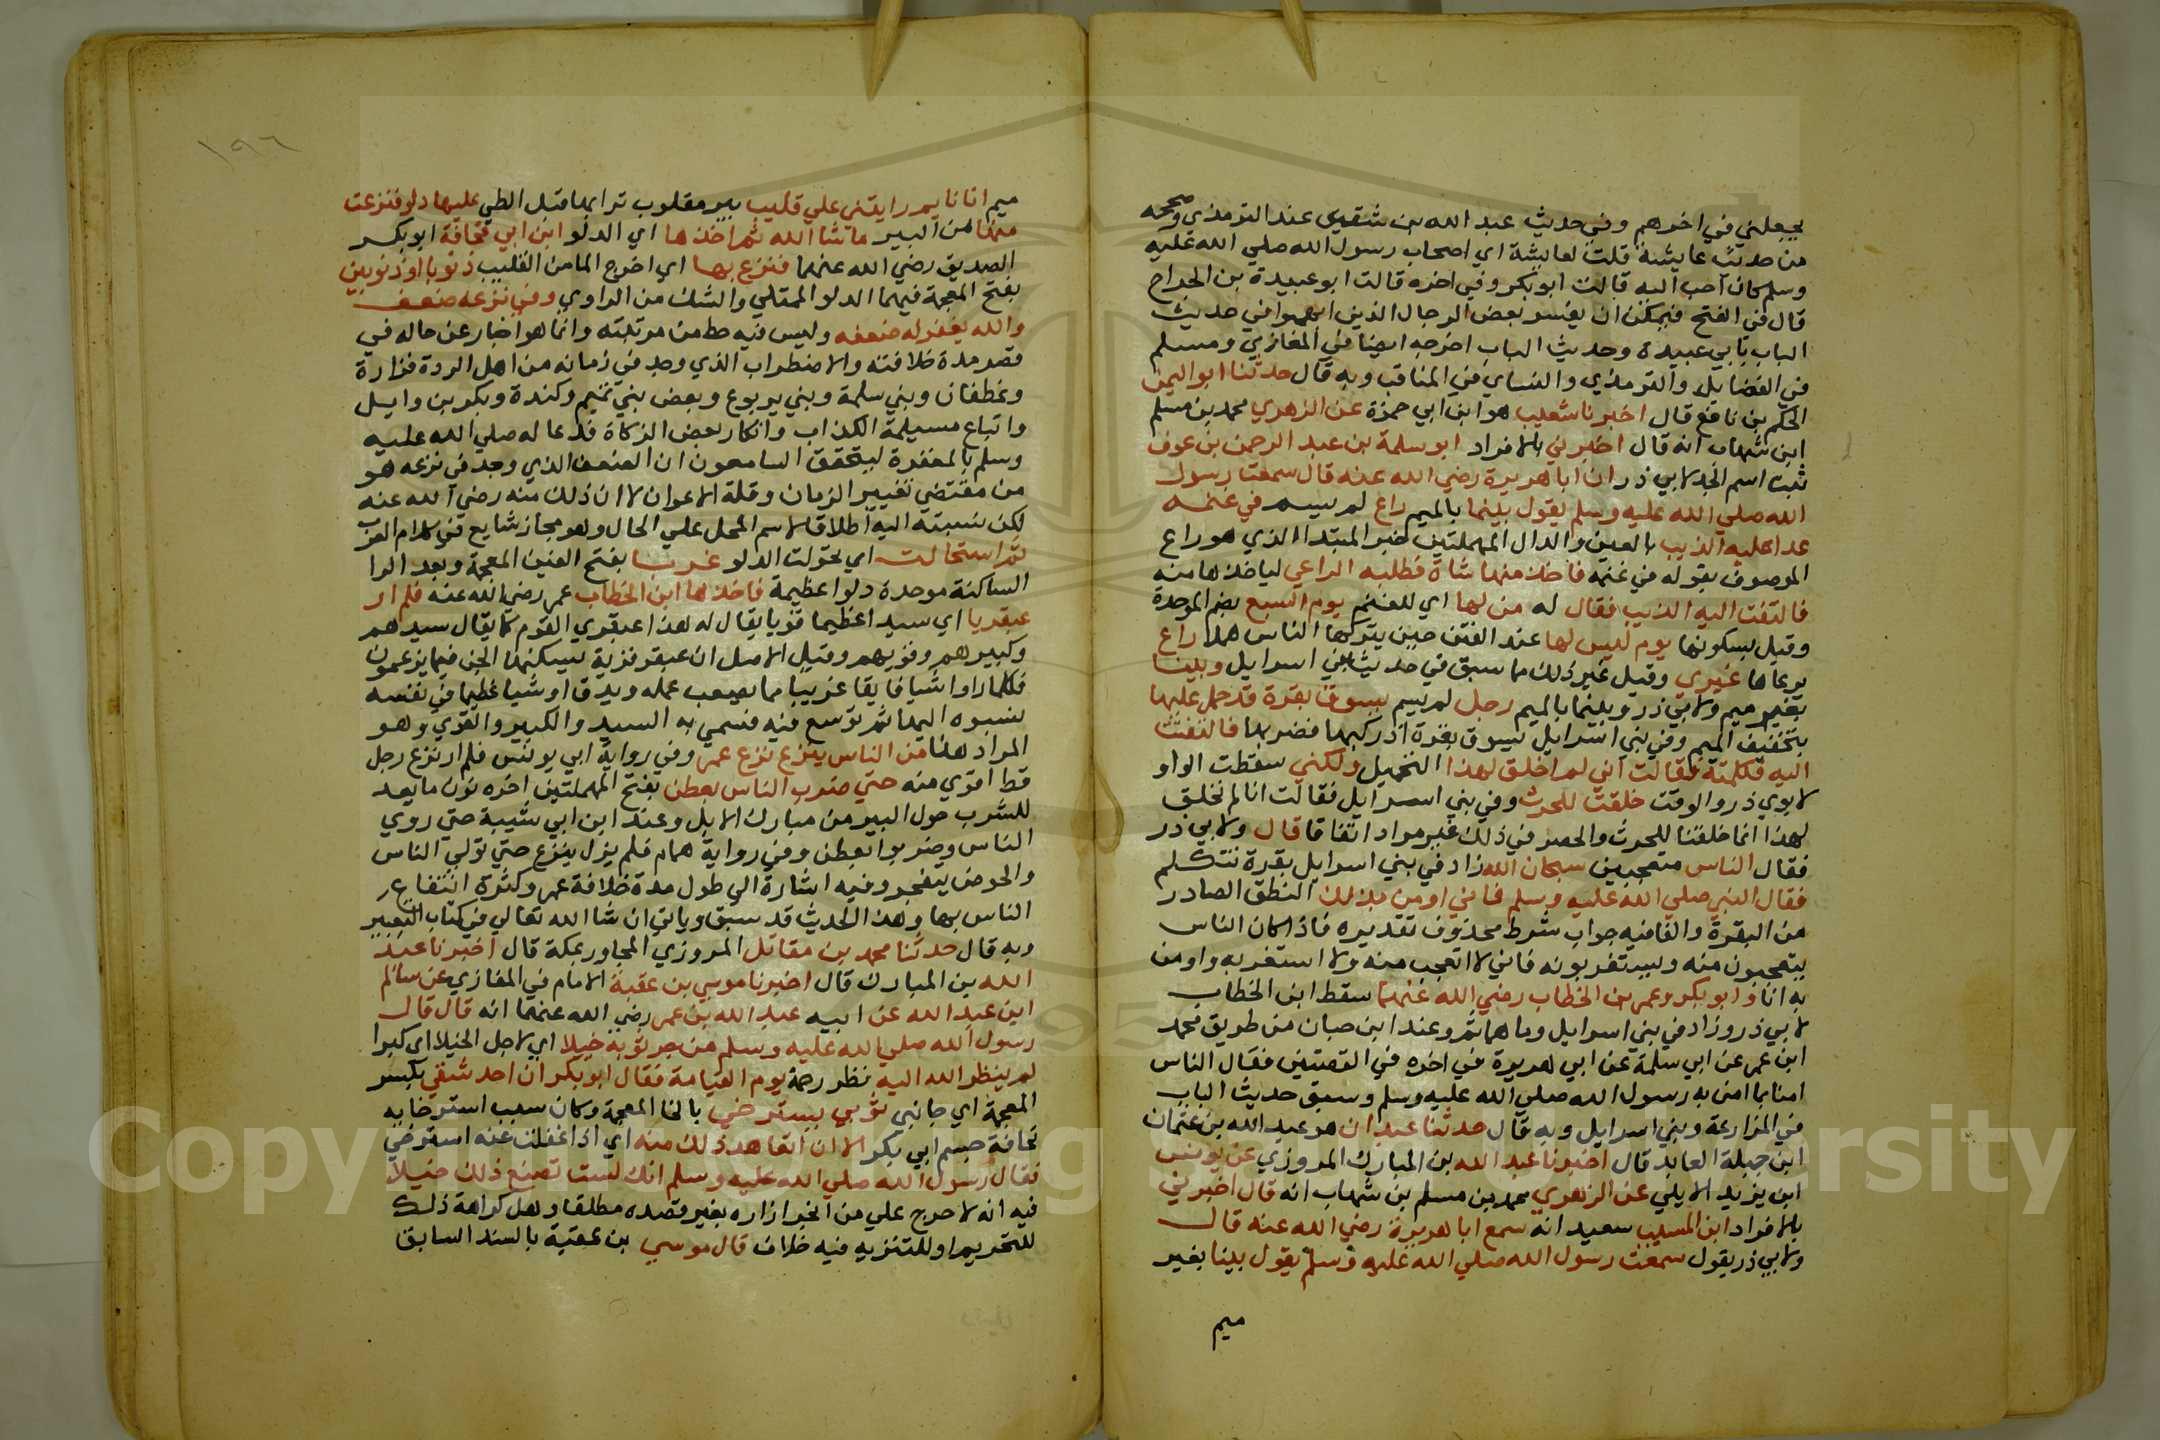 يجعلني في اخرهم وفي حديث عبد الله بن شقيق عند الترمذي وصححه
من حديث عايشة قلت لعايشة اي اصحاب رسول الله صلي الله عليه
وسلم كان احب اليه قالت ابو بكر وفي اخره قالت ابو عبيدة بن الجراح
قال في الفتح فيمكن ان يفسر بعض الرجال الذين ابهموا في حديث
الباب بابي عبيدة وحديث الباب اخرجه ايضا في المغازي ومسلم
في الفضايل والترمذي والنساي في المناقب وبه قال حدثنا ابو اليمن
الحكم بن نافع قال اخبرنا شعيب هو ابن ابي حمزة عن الزهري محمد بن مسلم
ابن شهاب انه قال اخبرني بالافراد ابو سلمة بن عبد الرحمن بن عوف
ثبت اسم الجد لابي ذر ان ابا هريرة رضي الله عنه قال سمعت رسول
الله صلي الله عليه وسلم يقول بينما بالميم راع لم يسم في غنمه
عدا عليه الذيب بالعين والدال المهملتين خبر المبتدا الذي هو راع
الموصوف بقوله في غنمه فاخذ منها شاة فطلبه الراعي لياخذها منه
فالتفت اليه الذيب فقال له من لها اي للغنم يوم السبع بضم الموحدة
وقيل بسكونها يوم ليس لها عند الفتن حين يتركها الناس هملا راع
يرعاها غيري وقيل غير ذلك مما سبق في حديث بني اسرايل وبينا
بغير ميم ولابي ذر وبينما بالميم رجل لم يسم يسوق بقرة قد حمل عليها
بتخفيف الميم وفي بني اسرايل يسوق بقرة اذ ركبها فضربها فالتفتت
اليه فكلمته فقالت اني لم اخلق لهذا التحميل ولكني سقطت الواو
لابوي ذر والوقت خلقت للحرث وفي بني اسرايل فقالت انا لم نخلق
لهذا انما خلقنا للحرث والحصر في ذلك غير مراد اتفاقا قال ولابي ذر
فقال الناس متعجبين سبحان الله زاد في بني اسرايل بقرة تتكلم
فقال النبي صلي الله عليه وسلم فاني اومن بذلك النطق الصادر
من البقرة والفا فيه جواب شرط محذوف تقديره فاذا كان الناس
يتعجبون منه ويستغربونه فاني لا اتعجب منه ولا استغربه واومن
به انا وابو بكر وعمر بن الخطاب رضي الله عنهما سقط ابن الخطاب
لابي ذر وزاد في بني اسرايل وما هما ثم وعند ابن حبان من طريق محمد
ابن عمر عن ابي سلمة عن ابي هريرة في اخره في القصتين فقال الناس
امنا بما امن به رسول الله صلي الله عليه وسلم وسبق حديث الباب
في المزارعة وبني اسرايل وبه قال حدثنا عبدان هو عبد الله بن عثمان
ابن جبلة العابد قال اخبرنا عبد الله بن المبارك المروزي عن يونس
ابن يزيد الايلي عن الزهري محمد بن مسلم بن شهاب انه قال اخبرني
بالافراد ابن المسيب سعيد انه سمع ابا هريرة رضي الله عنه قال
ولابي ذر يقول سمعت رسول الله صلي الله عليه وسلم يقول بينا بغير
ميم
١٩٦
ميم انا نايم رايتني علي قليب بير مقلوب ترابها قبل الطي عليها دلو فنزعت
منها من البير ما شا الله ثم اخذها اي الدلو ابن ابي قحافة ابو بكر
الصديق رضي الله عنهما فنزع بها اي اخرج الما من القليب ذنوبا او ذنوبين
بفتح المعجمة فيهما الدلو الممتلي والشك من الراوي وفي نزعه ضعف
والله يغفر له ضعفه وليس فيه حط من مرتبته وانما هو اخبار عن حاله في
قصر مدة خلافته والاضطراب الذي وجد في زمانه من اهل الردة فزارة
وغطفان وبني سلمة وبني يربوع وبعض بني تميم وكندة وبكر بن وايل
واتباع مسيلمة الكذاب وانكار بعض الزكاة فدعا له صلي الله عليه
وسلم بالمغفرة ليتحقق السامعون ان الضعف الذي وجد في نزعه هو
من مقتضي تغيير الزمان وقلة الاعوان لا ان ذلك منه رضي الله عنه
لكن نسبته اليه اطلاقا لاسم المحل علي الحال وهو مجاز شايع في كلام العرب
ثم استحالت اي تحولت الدلو غربا بفتح الغين المعجمة وبعد الرا
الساكنة موحدة دلوا عظيمة فاخذها ابن الخطاب عمر رضي الله عنه فلم ار
عبقريا اي سيدا عظيما قويا يقال له هذا عبقري القوم كما يقال سيدهم
وكبيرهم وقويهم وقيل الاصل ان عبقر قرية يسكنها الجن فيما يزعمون
فكلما راوا شيا فايقا غريبا مما يصعب عمله ويدق او شيا عظيما في نفسه
نسبوه اليها ثم توسع فيه فسمي به السيد والكبير والقوي وهو
المراد هنا من الناس ينزع نزع عمر وفي رواية ابي يونس فلم ار نزع رجل
قط اقوي منه حتي ضرب الناس بعطن بفتح المهملتين اخره نون ما يعد
للشرب حول البير من مبارك الابل وعند ابن ابي شيبة حتي روي
الناس وضربوا بعطن وفي رواية همام فلم يزل ينزع حتي تولي الناس
والحوض يتفجر وفيه اشارة الي طول مدة خلافة عمر وكثرة انتفاع
الناس بها وهذا الحديث قد سبق وياتي ان شا الله تعالي في كتاب التعبير
وبه قال حدثنا محمد بن مقاتل المروزي المجاور بمكة قال اخبرنا عبد
الله بن المبارك قال اخبرنا موسي بن عقبة الامام في المغازي عن سالم
ابن عبد الله عن ابيه عبد الله بن عمر رضي الله عنهما انه قال قال
رسول الله صلي الله عليه وسلم من جر ثوبه خيلا اي لاجل الخيلا اي كبرا
لم ينظر الله اليه نظر رحمة يوم القيامة فقال ابو بكر ان احد شقي بكسر
المعجمة اي جانبي ثوبي يسترخي بالخا المعجمة وكان سبب استرخايه
نحافة جسم ابي بكر الا ان اتعاهد ذلك منه اي اذا غفلت عنه استرخي
فقال رسول الله صلي الله عليه وسلم انك لست تصنع ذلك خيلا
فيه انه لا حرج علي من انجر ازاره بغير قصده مطلقا وهل كراهة ذلك
للتحريم او للتنزيه فيه خلاف قال موسي بن عقبة بالسند السابق